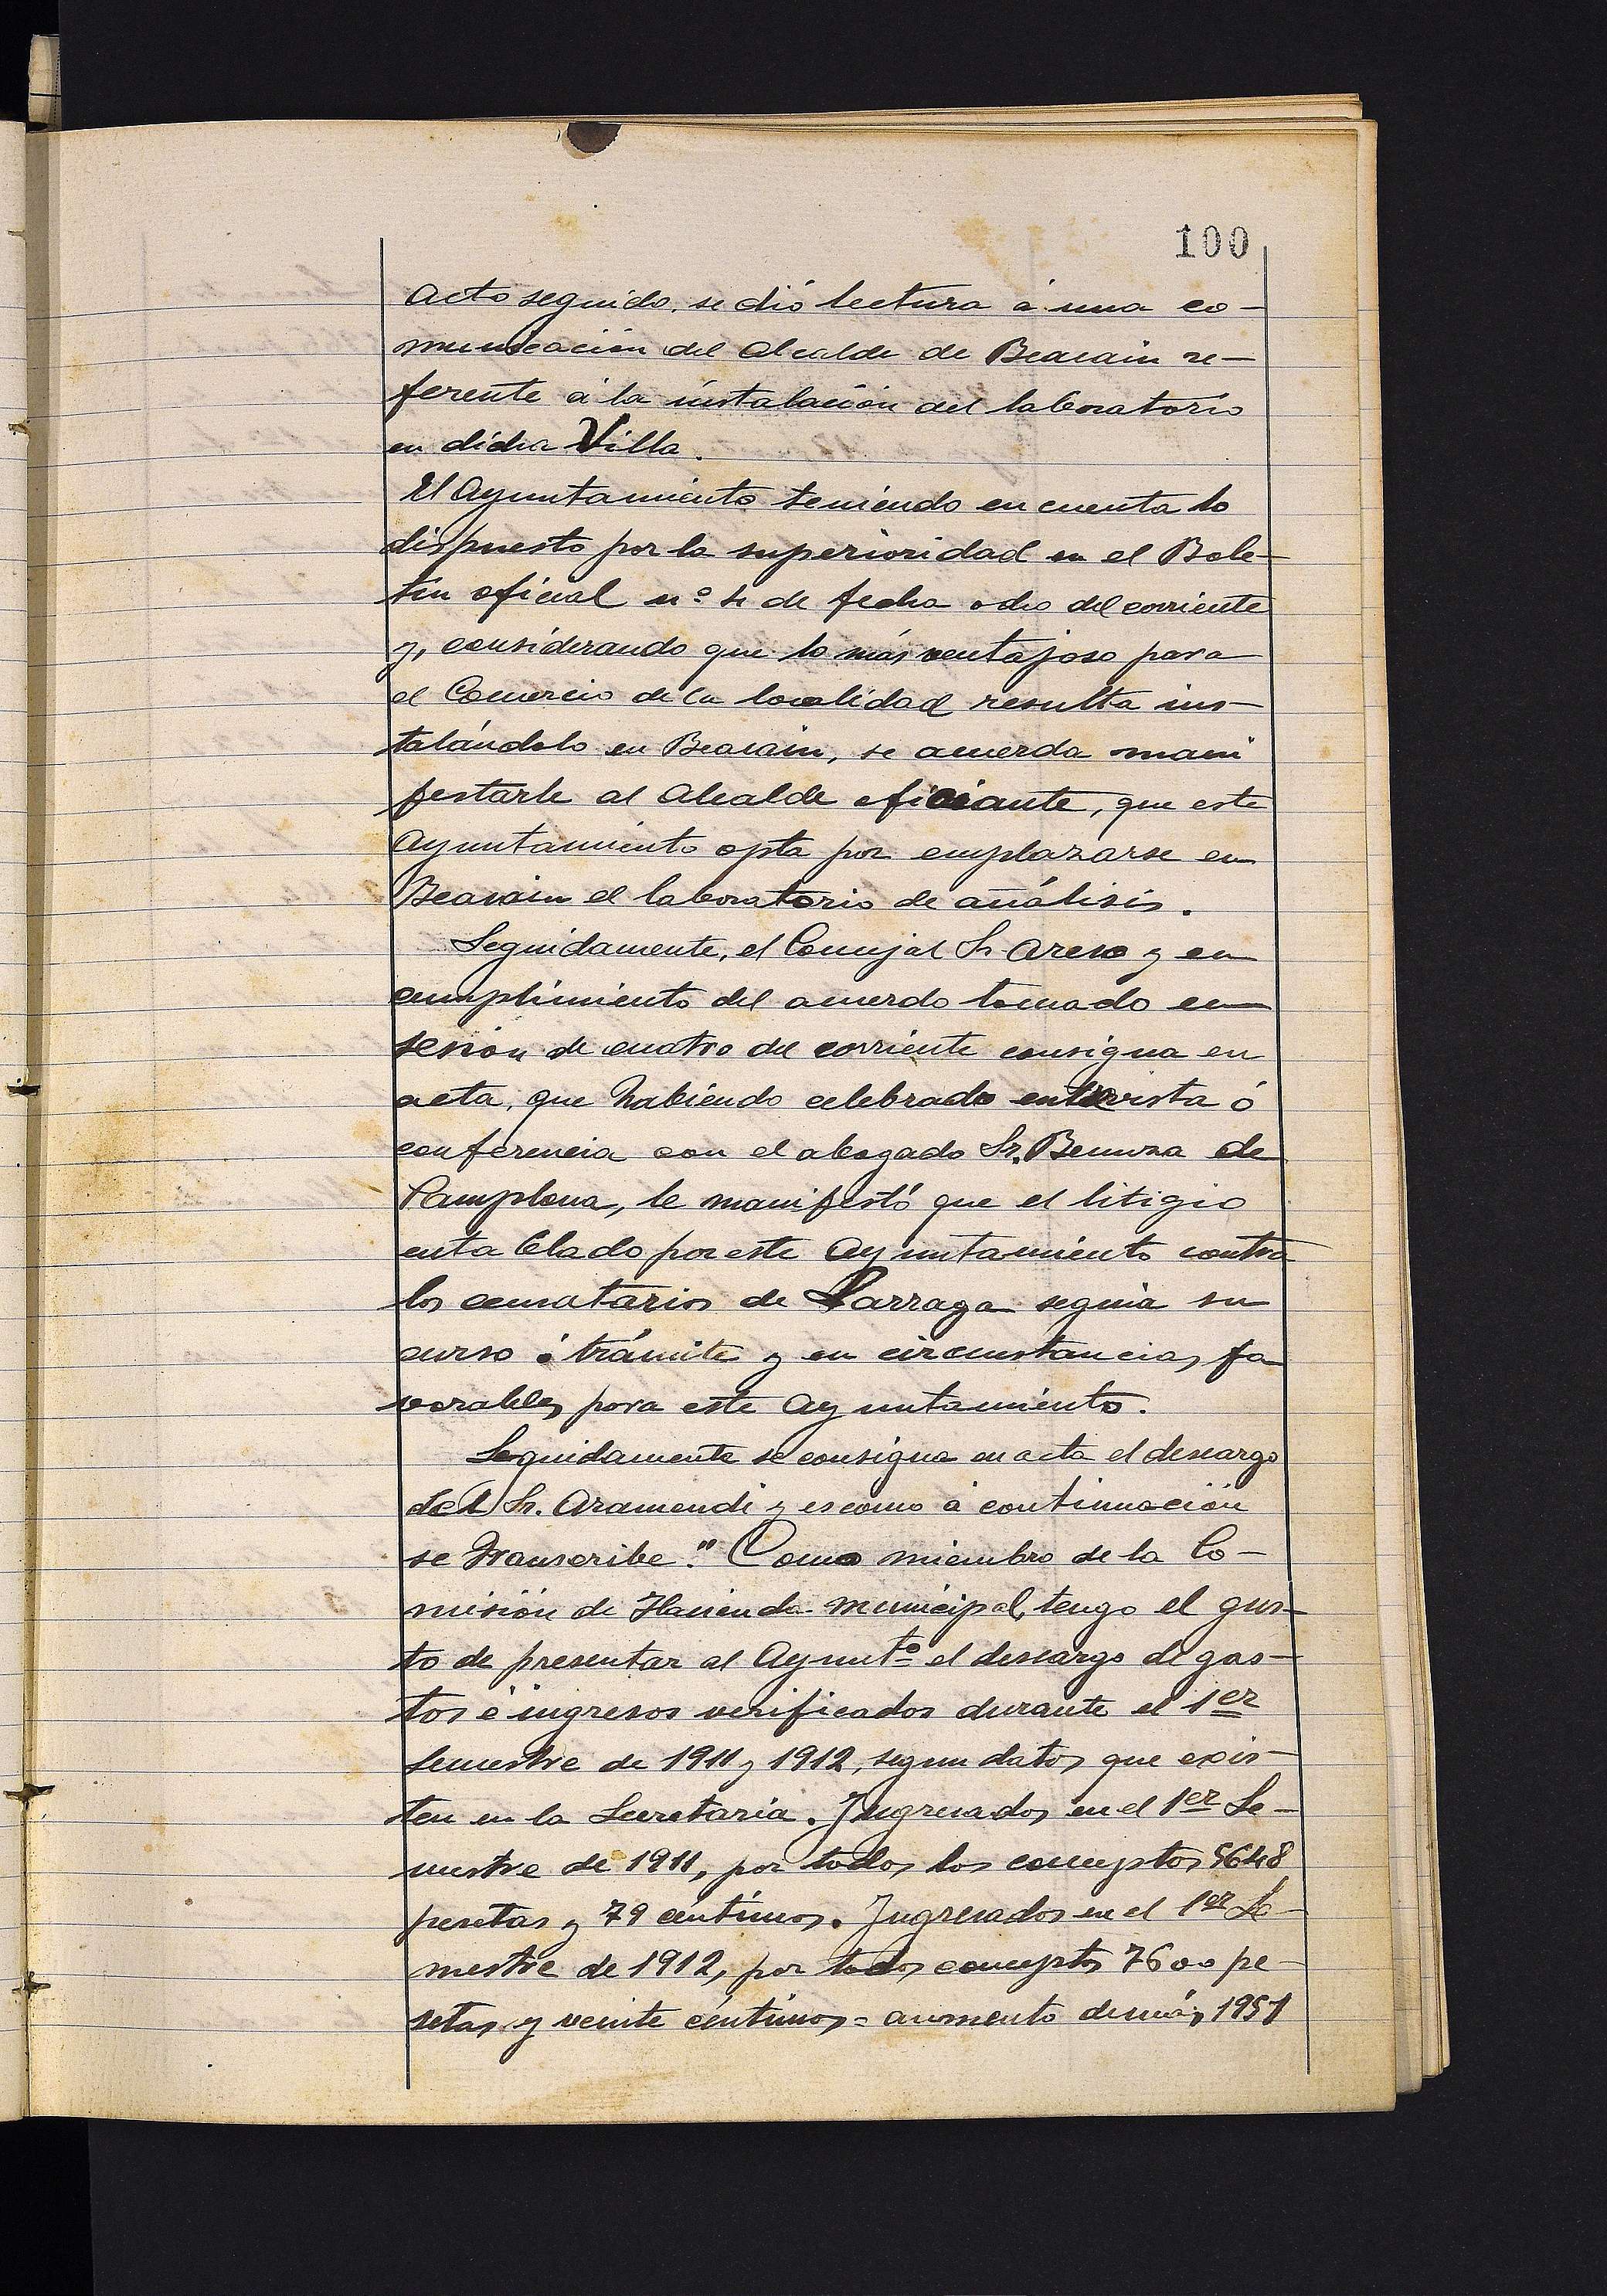 100
Acto seguido, se dió lectura á una co-
municación del Alcalde de Beasain re-
ferente á la instalación del laboratorio
en dicha Villa.
El Ayuntamiento teniendo en cuenta lo
dispuesto por la superioridad en el Bole-
tin oficial nº 4 de fecha ocho del corriente
y, considerando que lo más ventajoso para
el Comercio de la localidad resulta ins-
talándolo en Beasain, se acuerda mani
festarle al Alcalde oficiante, que este
Ayuntamiento opta por emplazarse en
Beasain el laboratorio de análisis.
Seguidamente, el Concejal Sr. Areso y en
cumplimiento del acuerdo tomado en
sesion de cuatro del corriente consigna en
acta, que habiendo celebrado entrevista ó
conferencia con el abogado Sr. Beunza de
Pamplona, le manifestó que el litigio
entablado por este Ayuntamiento contra
los censatarios de Larraga seguia su
curso ó trámite y en circunstancias fa
vorables para este Ayuntamiento.
Seguidamente se consigna en acta el descargo
del Sr. Aramendi y es como á continuación
se transcribe." Como miembro de la Co-
misión de Hacienda municipal, tengo el gus-
to de presentar al Ayuntº el descargo de gas-
tos é ingresos verificados durante el 1er
Semestre de 1911 y 1912, segun datos que exis-
ten en la Secretaria. Ingresados en el 1er Se-
mestre de 1911, por todos los conceptos 5648
pesetas y 79 céntimos. Ingresados en el 1er Se-
mestre de 1912, por todos conceptos 7600 pe-
setas y veinte céntimos = aumento demás 1951